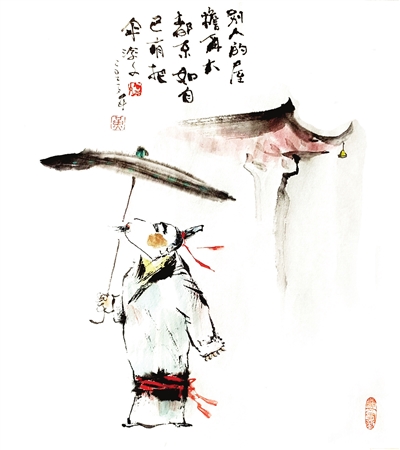 别人的屋
檐再大
都不如自
己有把
伞